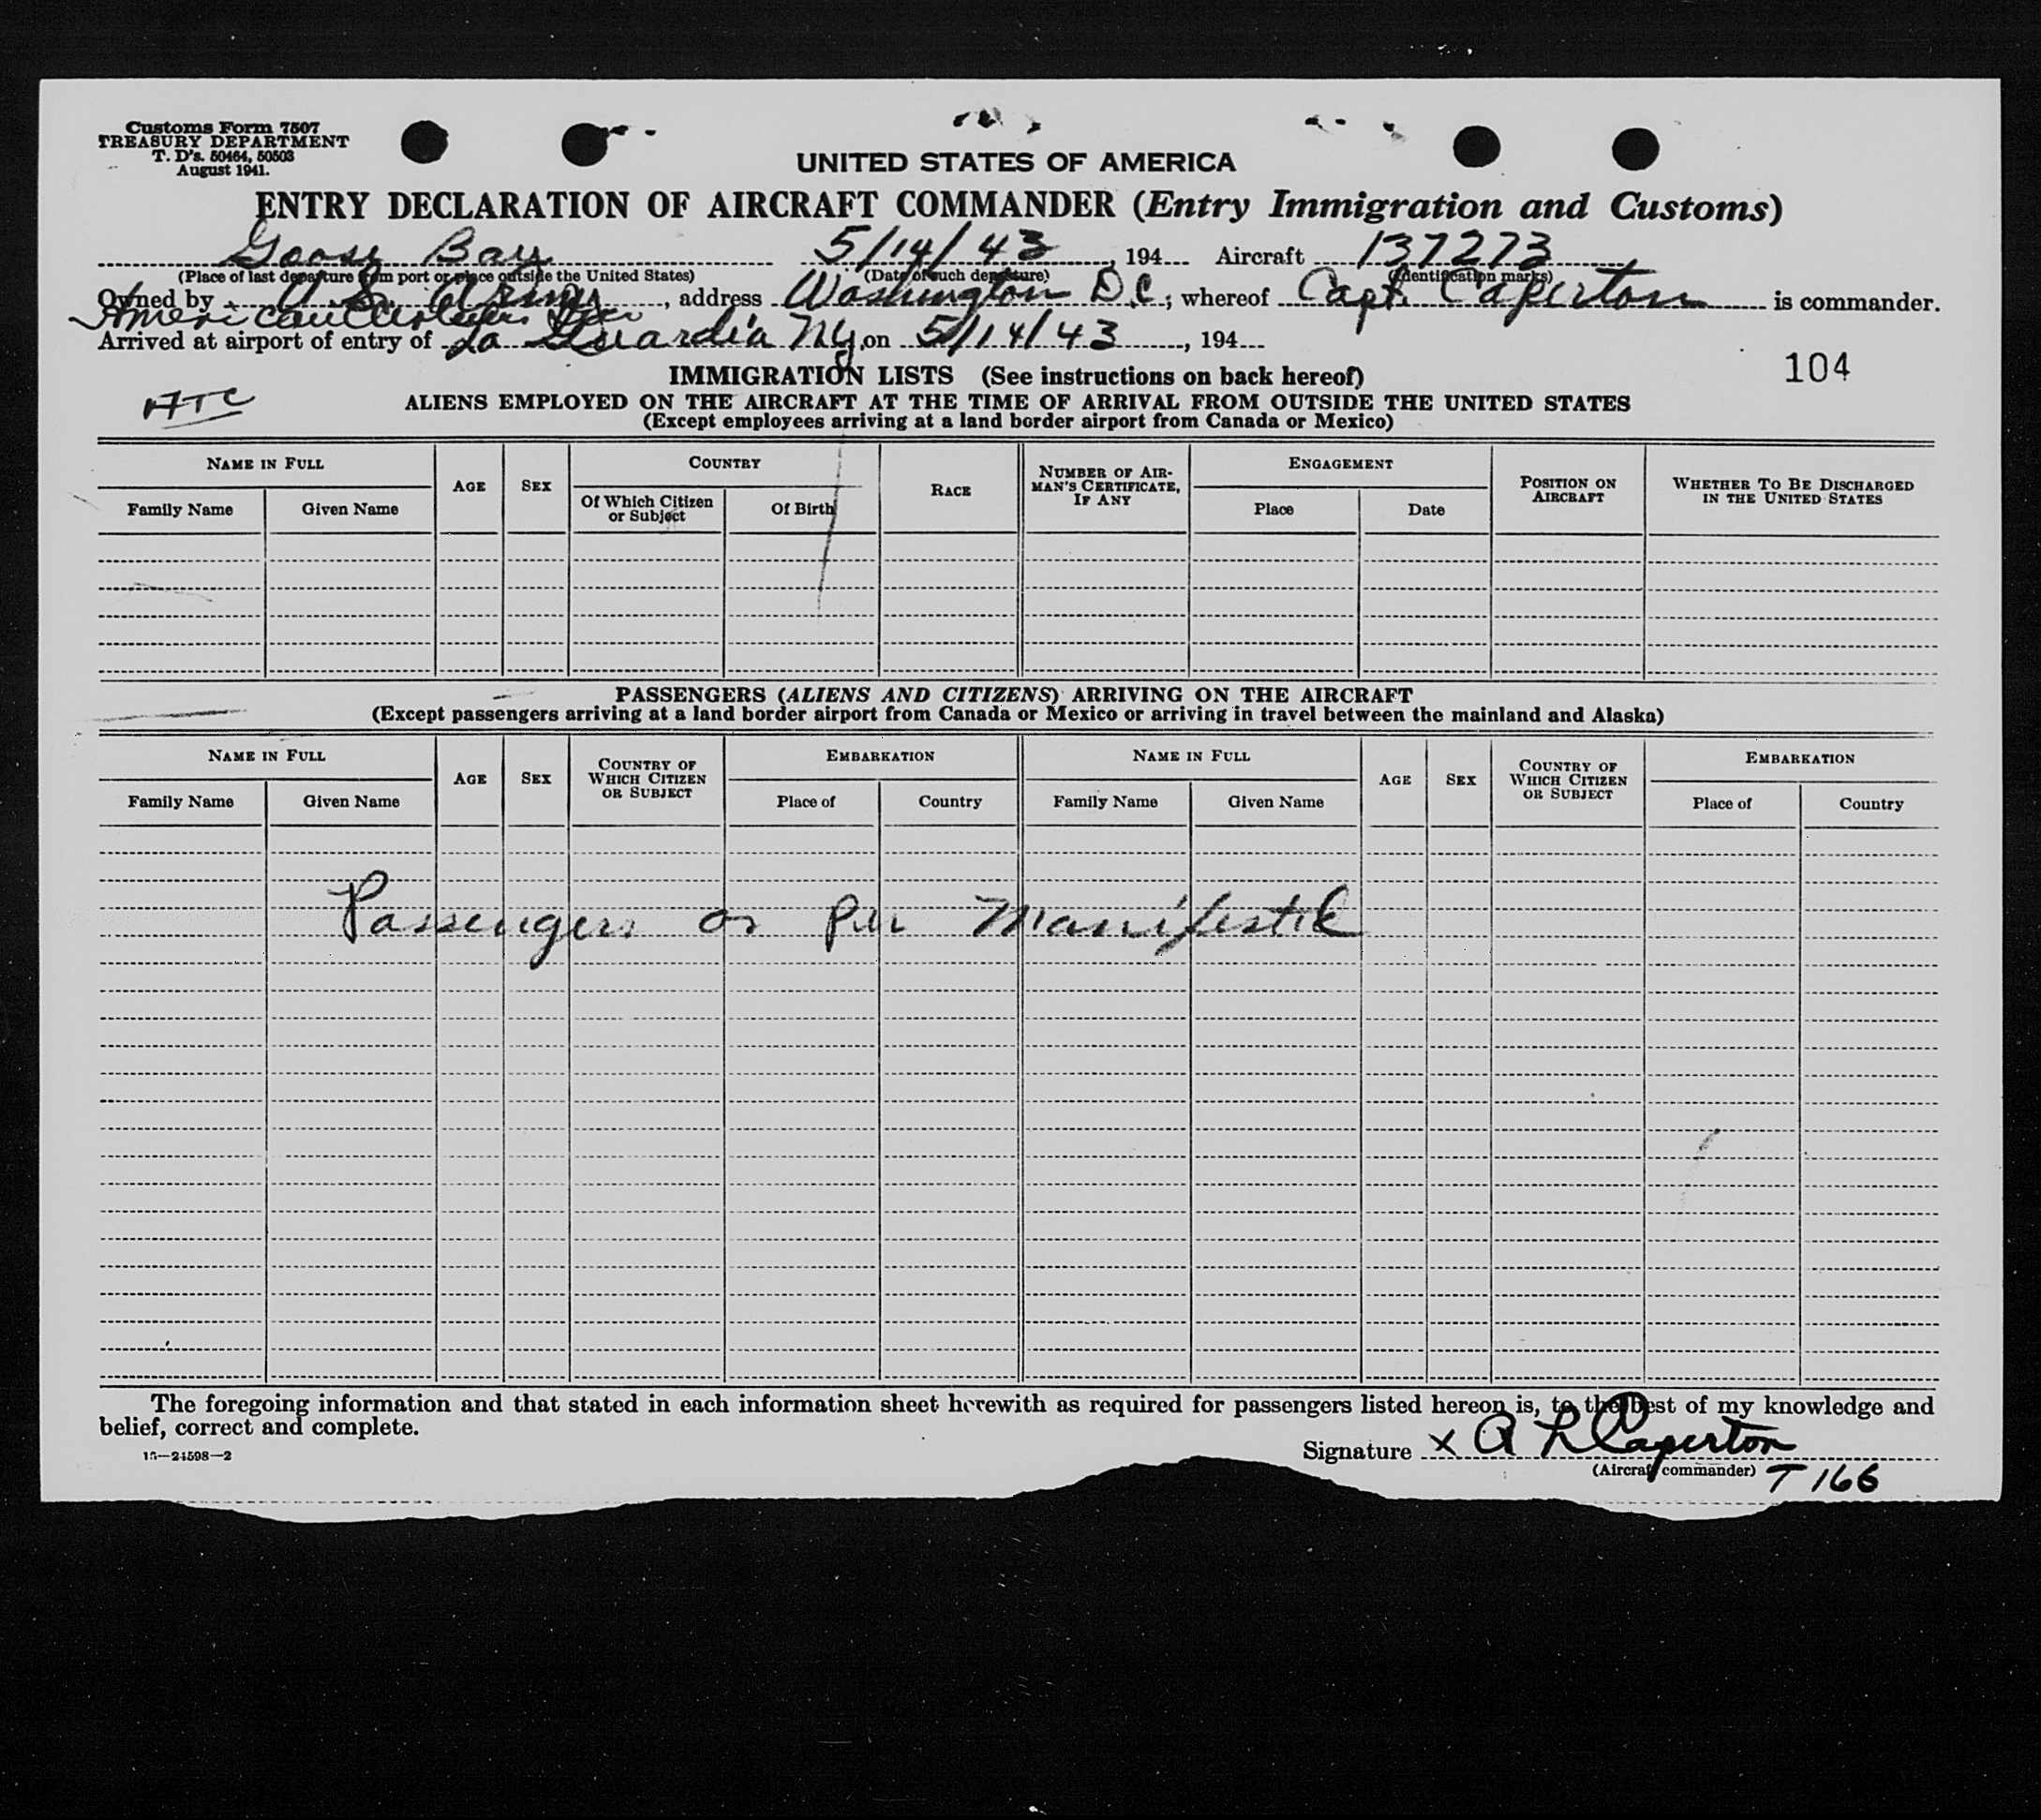 Customs Form 7507
TREASURY DEPARTMENT
T. D's. 50464, 50503
August 1941.
UNITED STATES OF AMERICA
ENTRY DECLARATION OF AIRCRAFT COMMANDER (Entry Immigration and Customs)
Goose Bay 5/14/43, 194 Aircraft 137273
(Place of last departure from port or place outside the United States) (Date of such departure) (Identification marks)
Owned by U S Army, address Washington D.C.; whereof Capt. Caperton is commander.
American
Arrived at airport of entry of La Guardia NY, on 5/14/43, 194
104
IMMIGRATION LISTS (See instructions on back hereof)
ATC
ALIENS EMPLOYED ON THE AIRCRAFT AT THE TIME OF ARRIVAL FROM OUTSIDE THE UNITED STATES
(Except employees arriving at a land border airport from Canada or Mexico)
NAME IN FULL AGE SEX COUNTRY RACE NUMBER OF AIR-MAN'S CERTIFICATE, IF ANY ENGAGEMENT POSITION ON AIRCRAFT WHETHER TO BE DISCHARGED IN THE UNITED STATES
Family Name Given Name Of Which Citizen or Subject Of Birth Place Date
PASSENGERS (ALIENS AND CITIZENS) ARRIVING ON THE AIRCRAFT
(Except passengers arriving at a land border airport from Canada or Mexico or arriving in travel between the mainland and Alaska)
NAME IN FULL AGE SEX COUNTRY OF WHICH CITIZEN OR SUBJECT EMBARKATION NAME IN FULL AGE SEX COUNTRY OF WHICH CITIZEN OR SUBJECT EMBARKATION
Family Name Given Name Place of Country Family Name Given Name Place of Country
Passengers as per
The foregoing information and that stated in each information sheet herewith as required for passengers listed hereon is, to the best of my knowledge and
belief, correct and complete.
16—24598—2
Signature x A R Caperton
(Aircraft commander) T 166